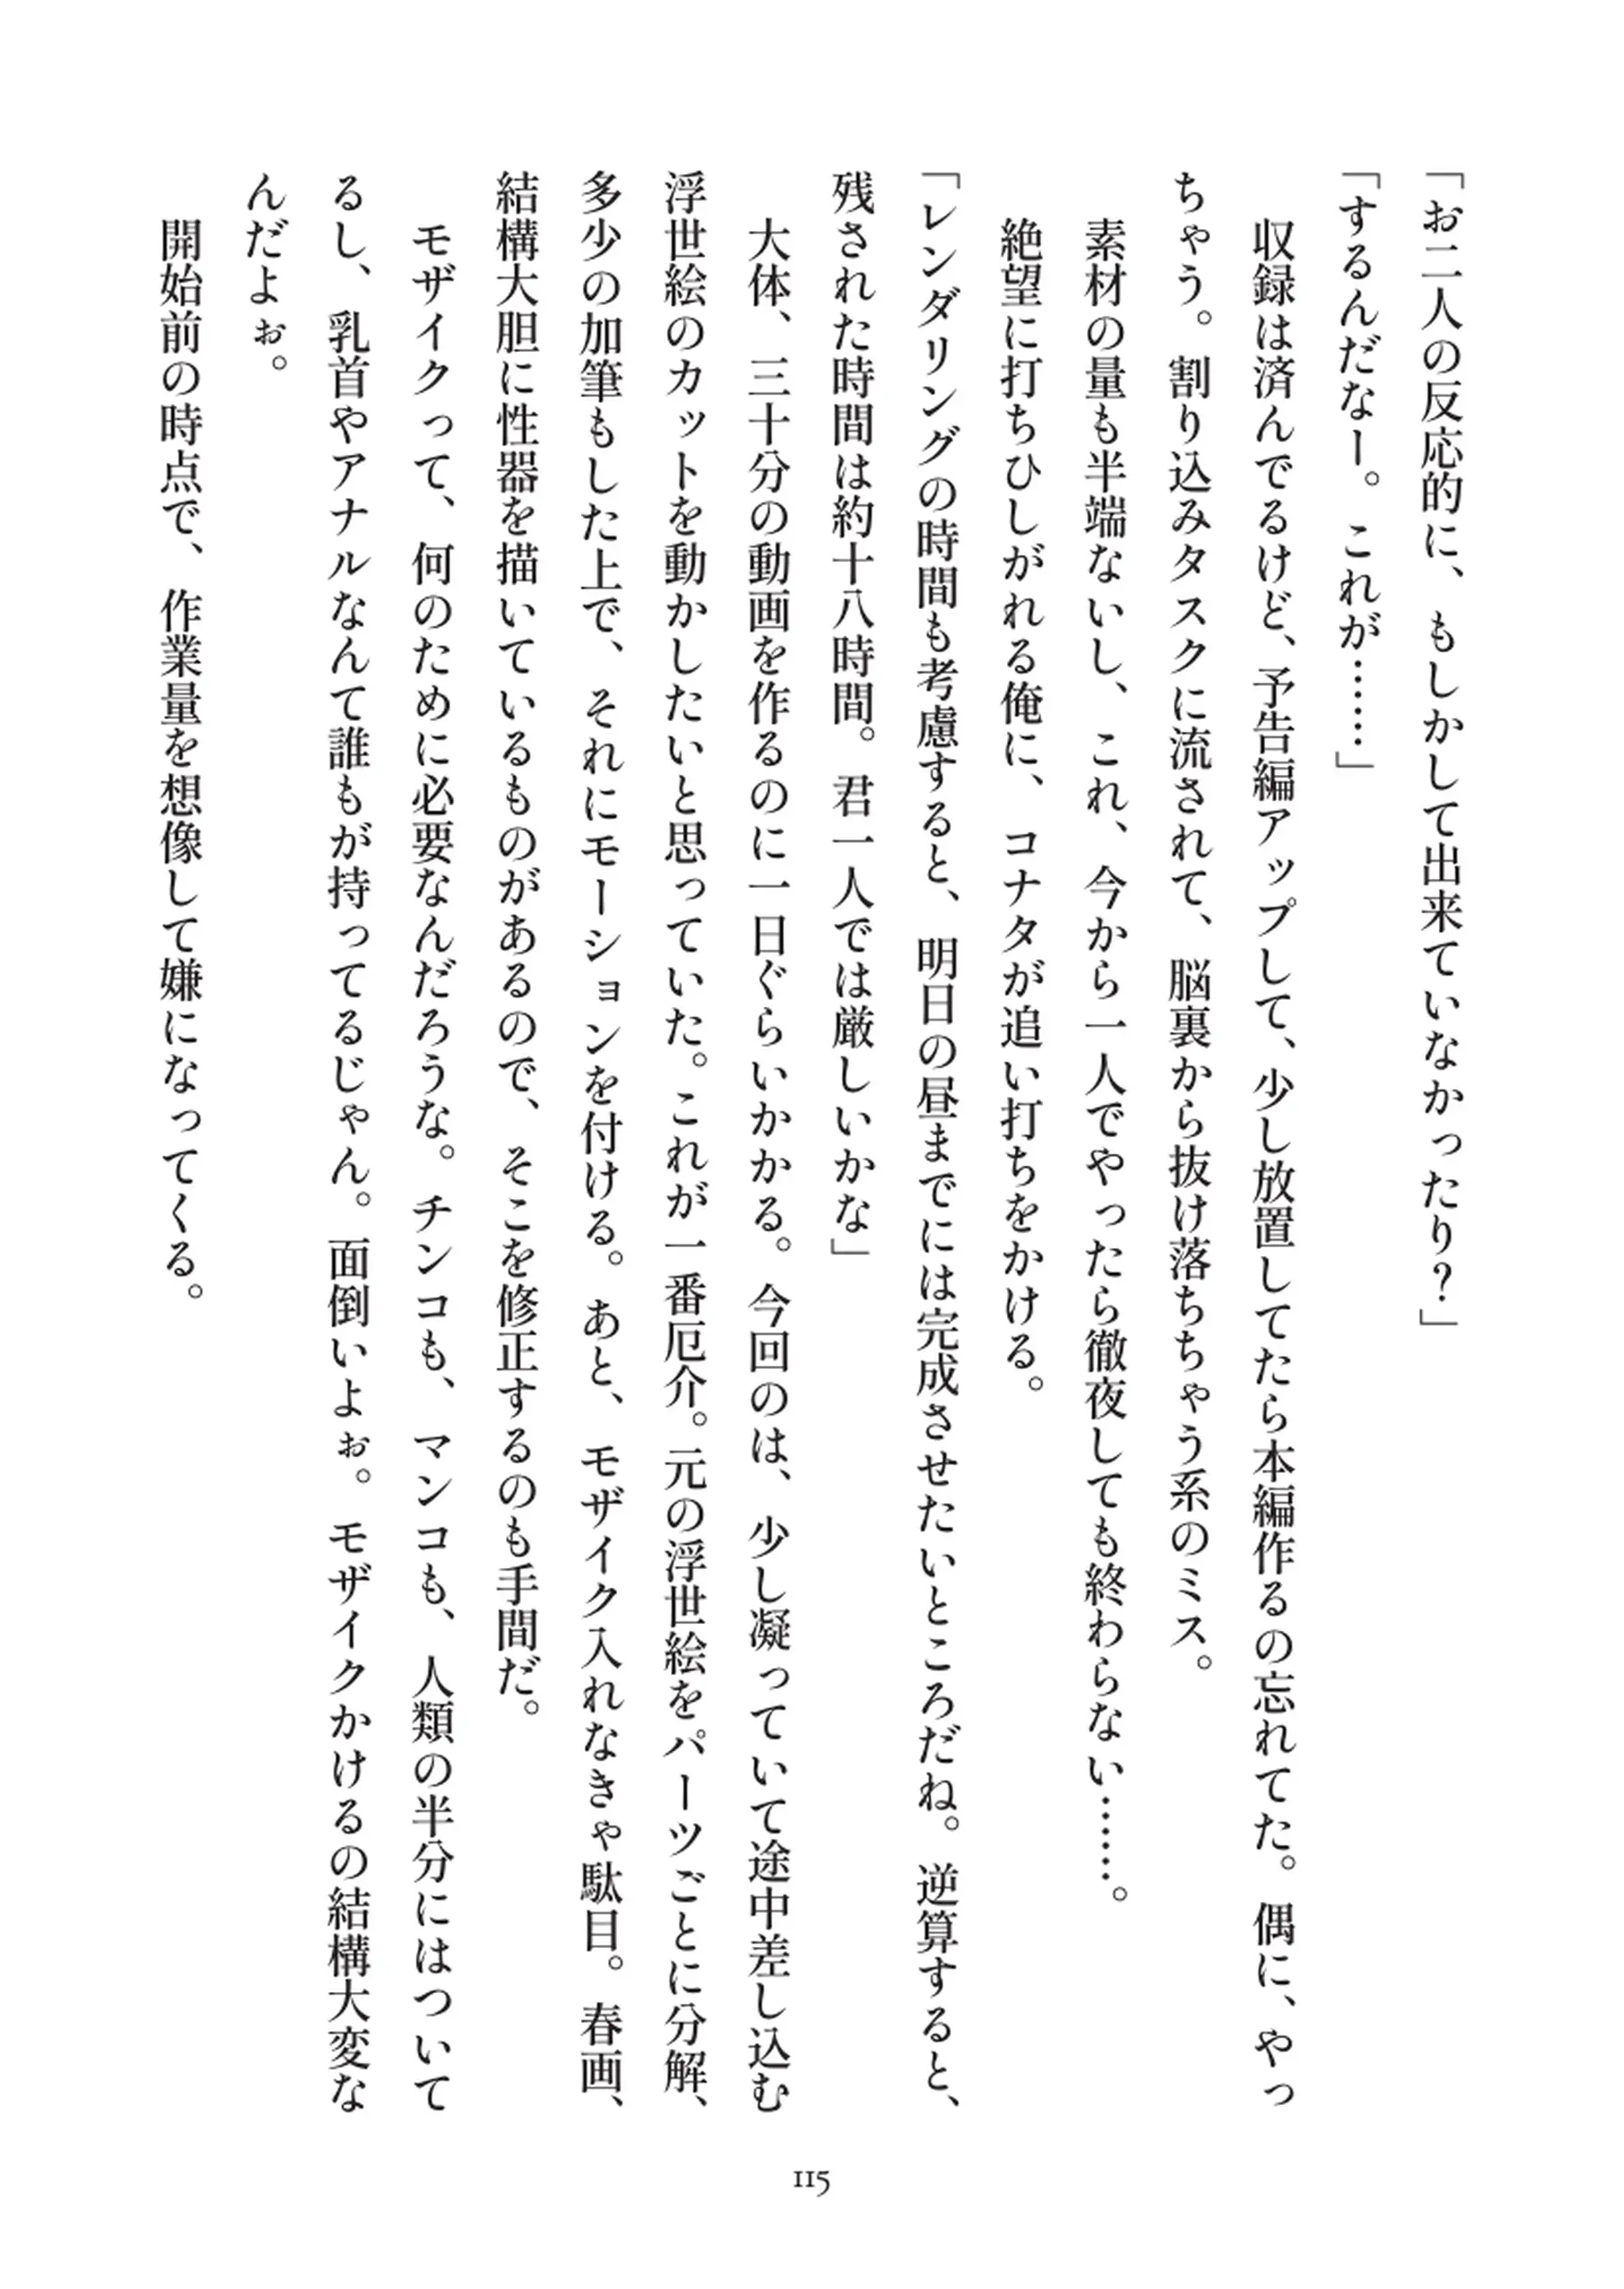 「お二人の反応的に、もしかして出来ていなかったり？」
「するんだなー。これが……」
収録は済んでるけど、予告編アップして、少し放置してたら本編作るの忘れてた。偶に、やっ
ちゃう。割り込みタスクに流されて、脳裏から抜け落ちちゃう系のミス。
素材の量も半端ないし、これ、今から一人でやったら徹夜しても終わらない……。
絶望に打ちひしがれる俺に、コナタが追い打ちをかける。
「レンダリングの時間も考慮すると、明日の昼までには完成させたいところだね。逆算すると、
残された時間は約十八時間。君一人では厳しいかな」
大体、三十分の動画を作るのに一日ぐらいかかる。今回のは、少し凝っていて途中差し込む
浮世絵のカットを動かしたいと思っていた。これが一番厄介。元の浮世絵をパーツごとに分解、
多少の加筆もした上で、それにモーションを付ける。あと、モザイク入れなきゃ駄目。春画、
結構大胆に性器を描いているものがあるので、そこを修正するのも手間だ。
モザイクって、何のために必要なんだろうな。チンコも、マンコも、人類の半分にはついて
るし、乳首やアナルなんて誰もが持ってるじゃん。面倒いよぉ。モザイクかけるの結構大変な
んだよぉ。
開始前の時点で、作業量を想像して嫌になってくる。
115